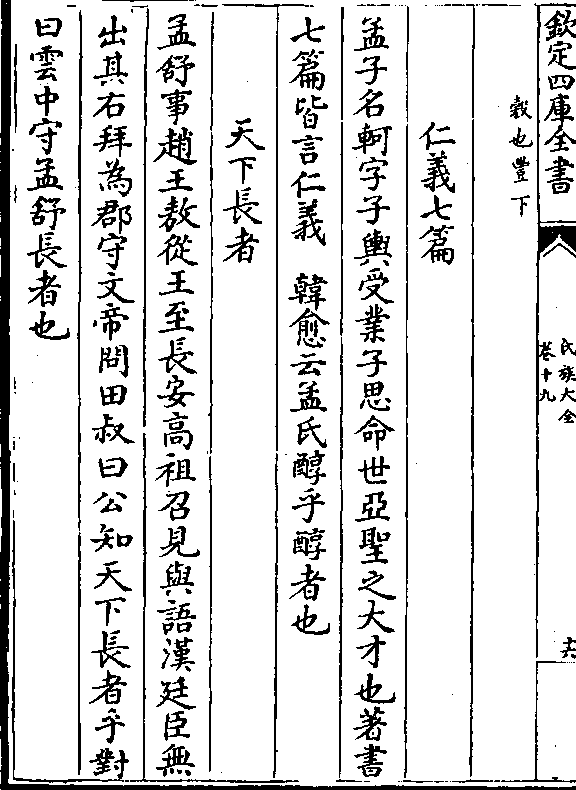 欽定四庫全書
氏族大全
卷十九
十六
穀也豐下
仁義七篇
孟子名軻字子輿受業子思命世亞聖之大才也著書
七篇皆言仁義　韓愈云孟氏醇乎醇者也
天下長者
孟舒事趙王敖從王至長安高祖召見與語漢廷臣無
出其右拜為郡守文帝問田叔曰公知天下長者乎對
曰雲中守孟舒長者也